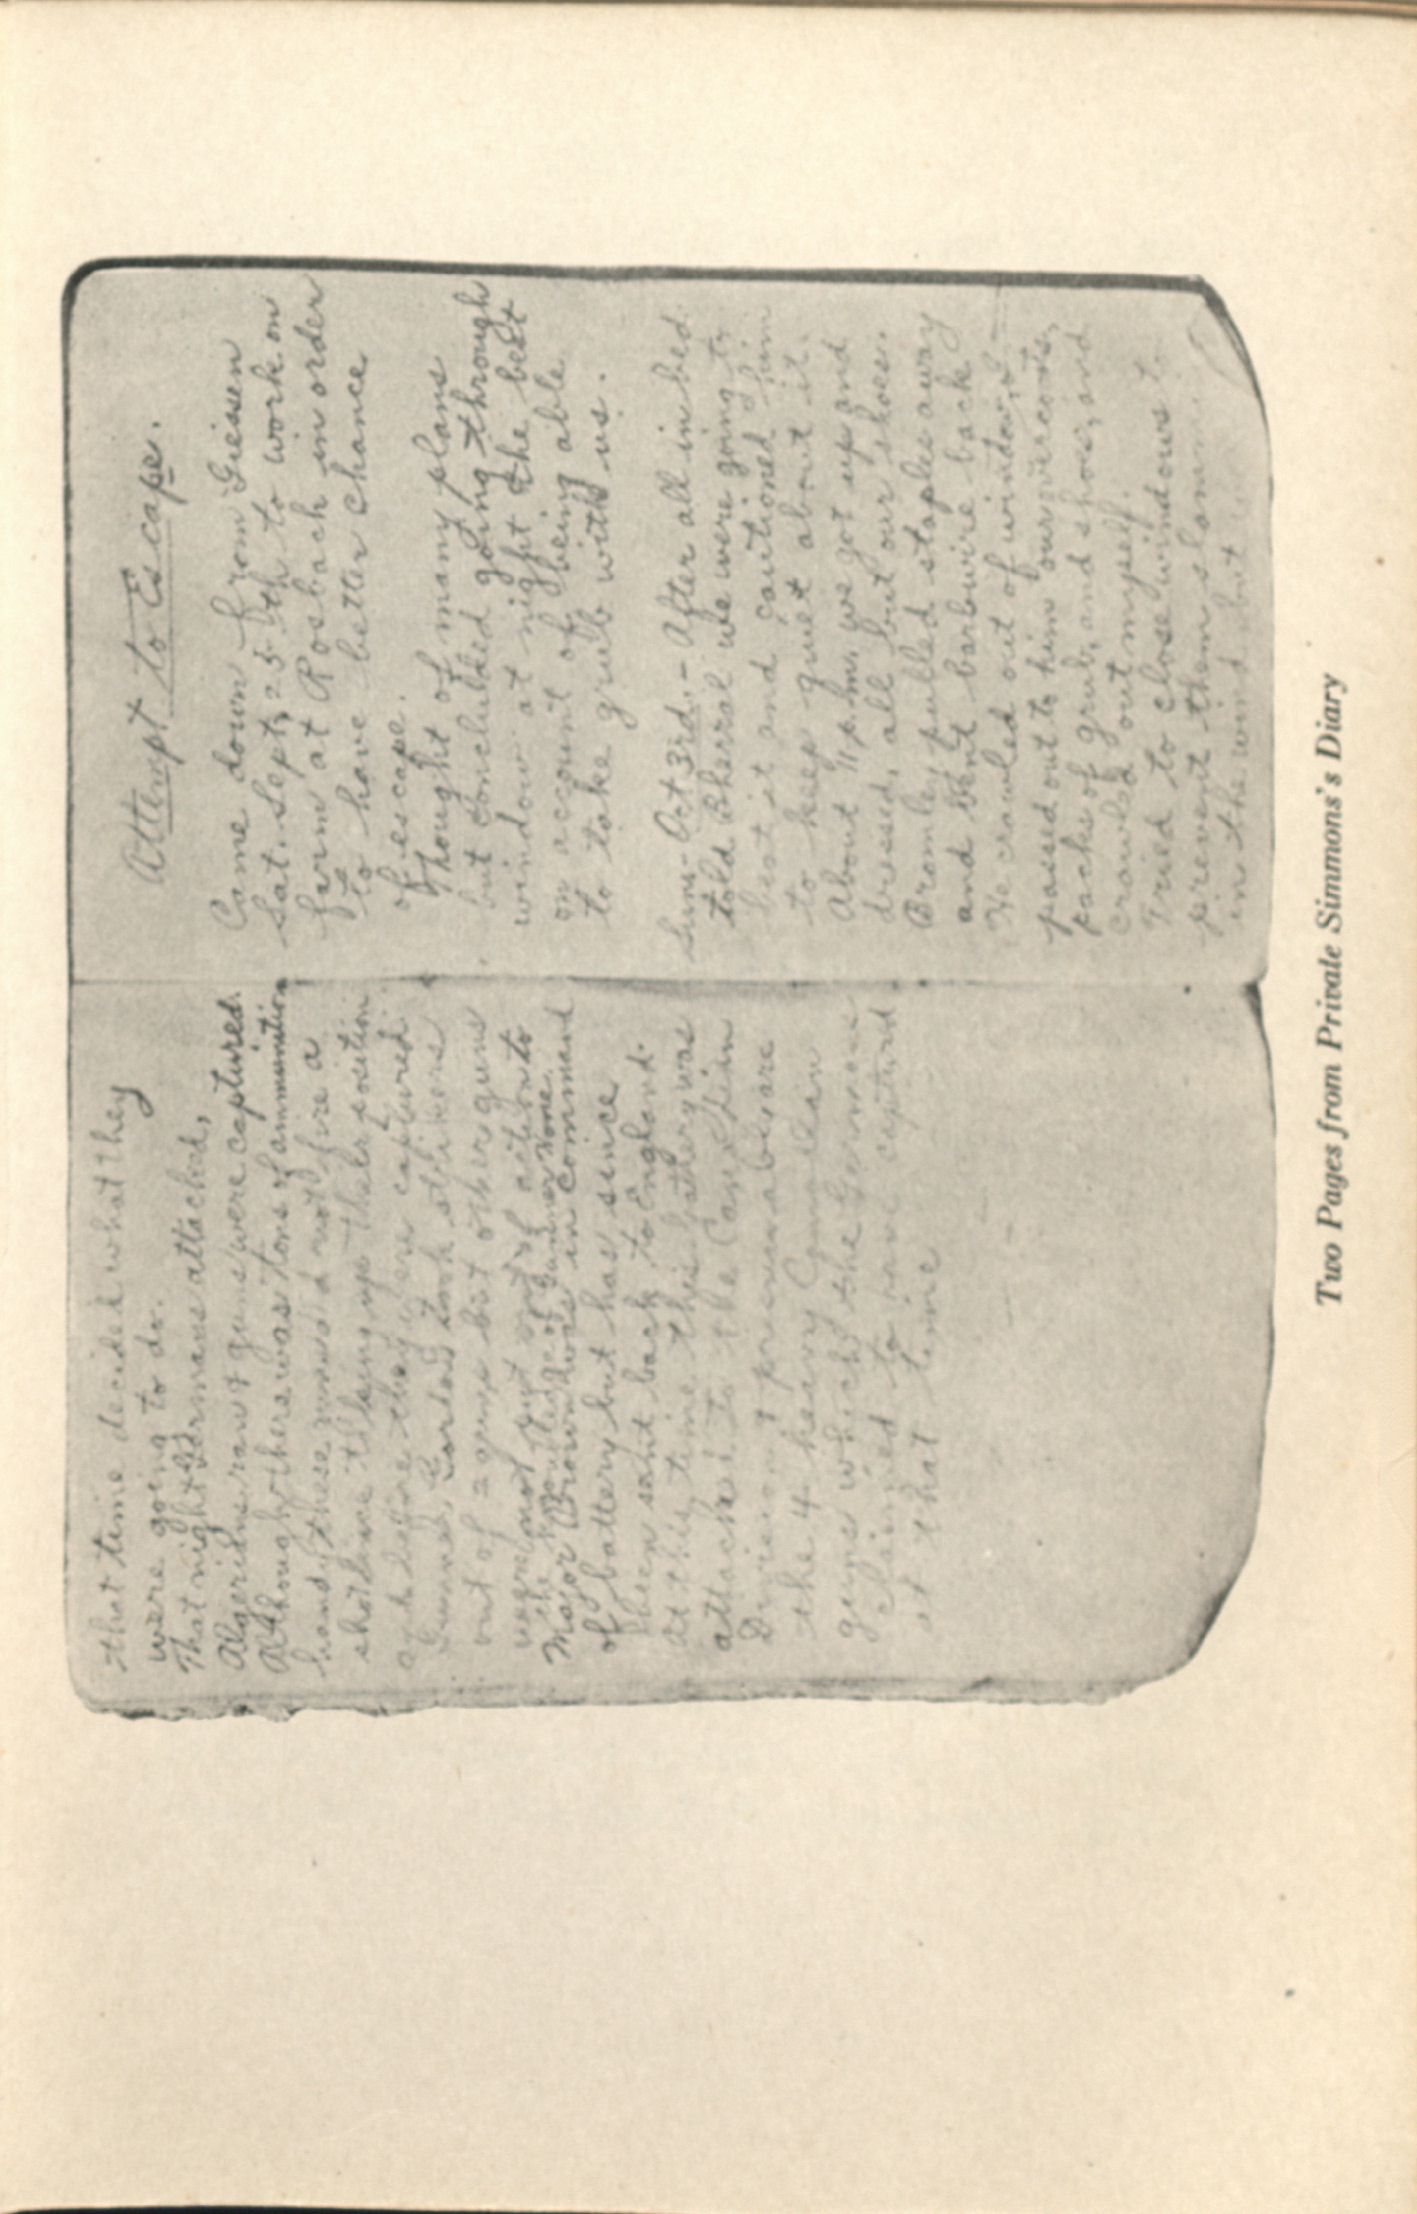 that time decided what they
were going to do.
That night Germans attached,
Algerians ran & guns were captured.
Although there was tons of ammunition
handy these guns did not fire a
shot have to lay up their position
and before they were captured.
Gunner Gordon took strikers
out of 2 guns but other guns
were not put out of action to
the knowledge of Gunner Nome.
Major Brown was in command
of battery but has since
been sent back to England.
At this time this battery was
attached to the Canadian
Division, & presumably are
the 4 heavy Canadian
guns which the Germans
claimed to have captured
at that time
Attempt to Escape.
Came down from Giessen
Sat. Sept, 25th to work on
farm at Rosbach in order
to have better chance
of escape.
Thought of many plans
but concluded going through
window at night the best
on account of being able
to take grub with us.
Sun. Oct 3rd. - After all in bed
told Bherral we were going to
beat it and cautioned him
to keep quiet about it.
About 11 p.m. we got up and
dressed, all but our shoes.
Bromley pulled staples away
and bent barbwire back
He crawled out of window, I
passed out to him our overcoats,
packs of grub, and shoes, and
crawled out myself.
Tried to close windows to
prevent them slamming
in the wind but
Two Pages from Private Simmons's Diary